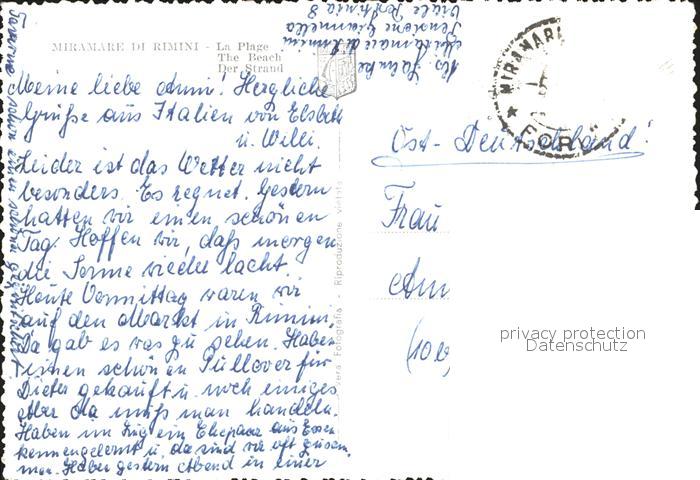 MIRAMARE DI RIMINI - La Plage
The Beach
Der Strand
Meine liebe Anni! Herzliche
Grüße aus Italien von Elsbeth
u. Willi.
Leider ist das Wetter nicht
besonders. Es regnet. Gestern
hatten wir einen schönen
Tag. Hoffen wir, daß morgen
die Sonne wieder lacht.
Heute Vormittag waren wir
auf den Markt in Rimini.
Da gab es was zu sehen. Haben
einen schönen Pullover für
Dieter gekauft u. noch einiges
Aber da muß man handeln.
Haben im Zug ein Ehepaar aus Essen
kennengelernt u. da sind wir oft zusam
men. Haben gestern Abend in einer
Taverne
Pensione
Miramare di Rimini
Viale 8
vera Fotografia - Riproduzione vietata
MIRAMAR
FOR
Ost-Deutschland!
Frau
Ann
(10b)
privacy protection
Datenschutz